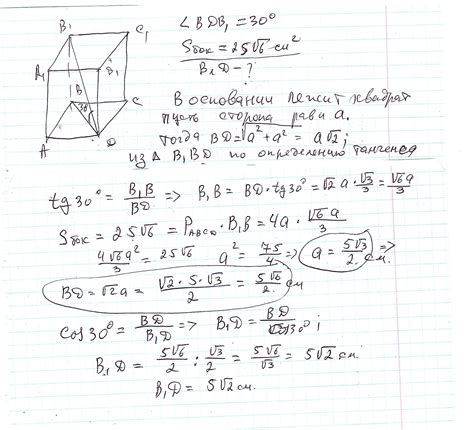 B₁ C₁
∠BDB₁ = 30°
Sбок = 25√6 см²
A₁ B₁
B₁D - ?
B
30°
C
A D
В основании лежит квадрат
пусть сторона равн a.
тогда BD = √a² + a² = a√2;
из Δ B₁BD по определению тангенса
tg 30° = B₁B/BD => B₁B = BD · tg 30° = √2 a · √3/3 = √6a/3
Sбок = 25√6 = P_ABCD · B₁B = 4a · √6 a/3
4√6a²/3 = 25√6 a² = 75/4 => a = 5√3/2 см. =>
BD = √2a = √2 · 5 · √3/2 = 5√6/2 см
cos 30° = BD/B₁D => B₁D = BD/cos 30° ;
B₁D = 5√6/2 : √3/2 = 5√6/√3 = 5√2 см.
B₁D = 5√2 см.